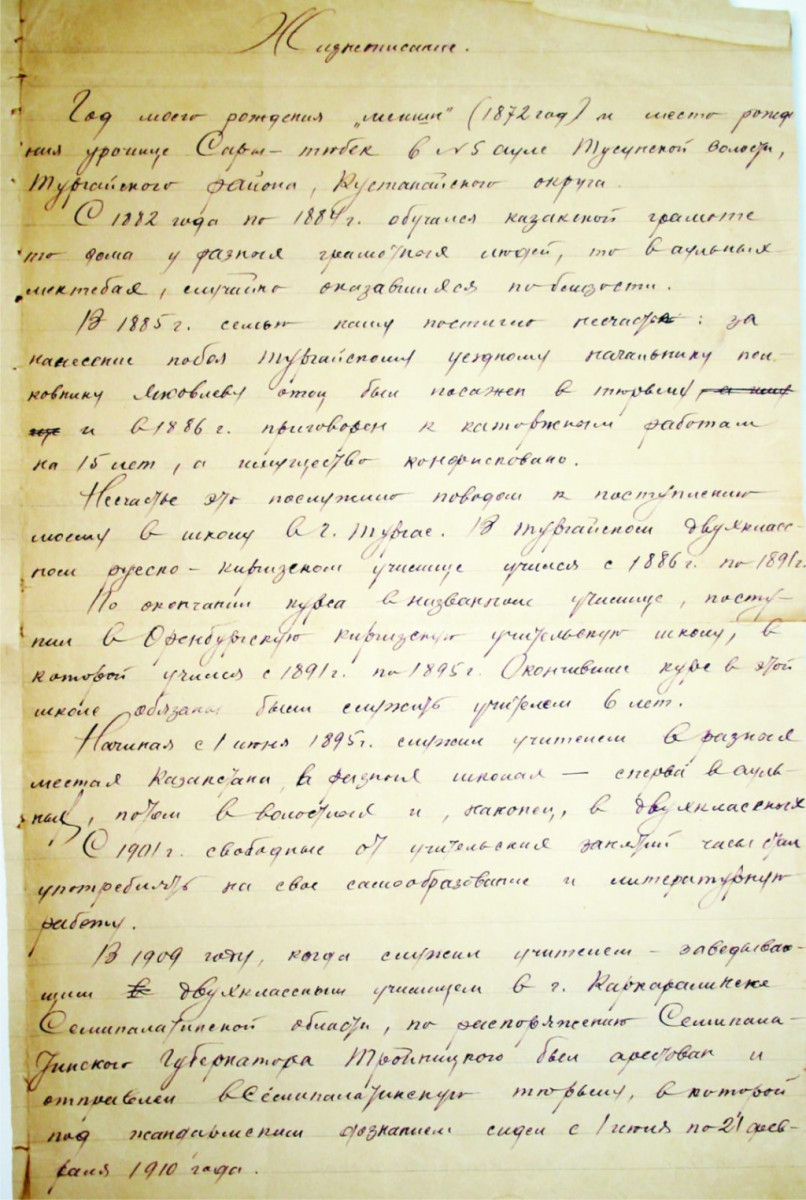 Жизнеописание.
Год моего рождения „мешин" (1872 год) и место рожде
ния урочище Сары-тюбек в №5 ауле Тусунской волости,
Тургайского района, Кустанайского округа.
С 1882 года по 1884 г. обучался казакской грамоте
то дома у разных грамотных людей, то в аульных
мектебах, случайно оказавшихся поблизости.
В 1885 г. семью нашу постигло несчастье: за
нанесение побоя Тургайскому уездному начальнику пол
ковнику Яковлеву отец был посажен в тюрьму,
и в 1886 г. приговорен к каторжным работам
на 15 лет, а имущество конфисковано.
Несчастье это послужило поводом к поступлению
моему в школу в г. Тургае. В Тургайском двухкласс-
ном русско-киргизском училище учился с 1886 г. по 1891 г.
По окончании курса в названном училище, посту-
пил в Оренбургскую киргизскую учительскую школу, в
которой учился с 1891 г. по 1895 г. Окончившие курс в этой
школе обязаны были служить учителем 6 лет.
Начиная с 1 июня 1895 г. служил учителем в разных
местах Казакстана, в разных школах — сперва в ауль-
ных, потом в волостных и, наконец, в двухклассных
С 1901 г. свободные от учительских занятий часы стал
употреблять на свое самообразование и литературную
работу.
В 1909 году, когда служил учителем-заведываю-
щим двухклассным училищем в г. Каркаралинске
Семипалатинской области, по распоряжению Семипала-
тинского Губернатора Тройницкого был арестован и
отправлен в Семипалатинскую тюрьму, в которой
под жандармским дознанием сидел с 1 июля по 21 фев-
раля 1910 года.